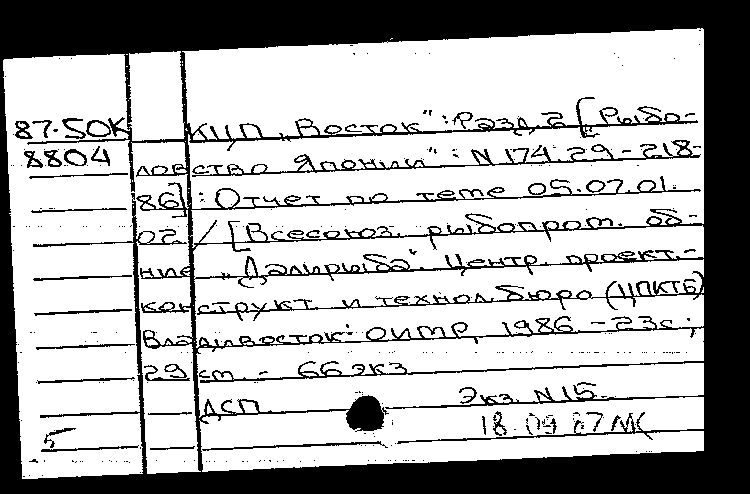 87-50К КЦП „Восток": Разд. 2 [„Рыбо-
8804 ловство Японии": N 174.29-218-
86]: Отчет по теме 05.07.01.
02 / [Всесоюз. рыбопром. об-
ние „Дальрыба". Центр. проект.-
конструкт. и технол. бюро (ЦПКТБ)
Владивосток: ОИТР, 1986. - 23с;
29 см. - 66 экз
ДСП. Экз. N 15.
5 18.09.87